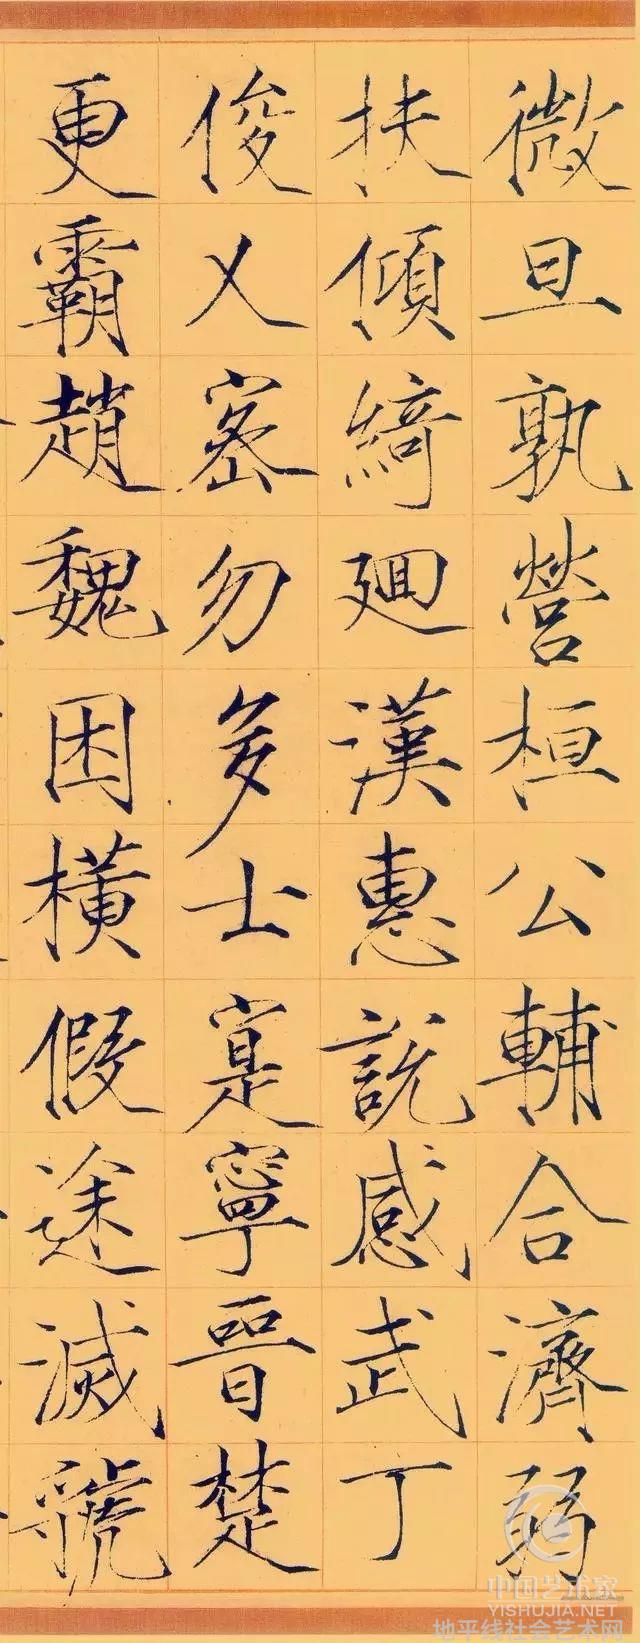 微旦孰營桓公輔合濟弱
扶傾綺迴漢惠說感武丁
俊乂密勿多士寔寧晉楚
更霸趙魏困橫假途滅虢
中国艺术家
YISHUJIA.NET
地平线社会艺术网